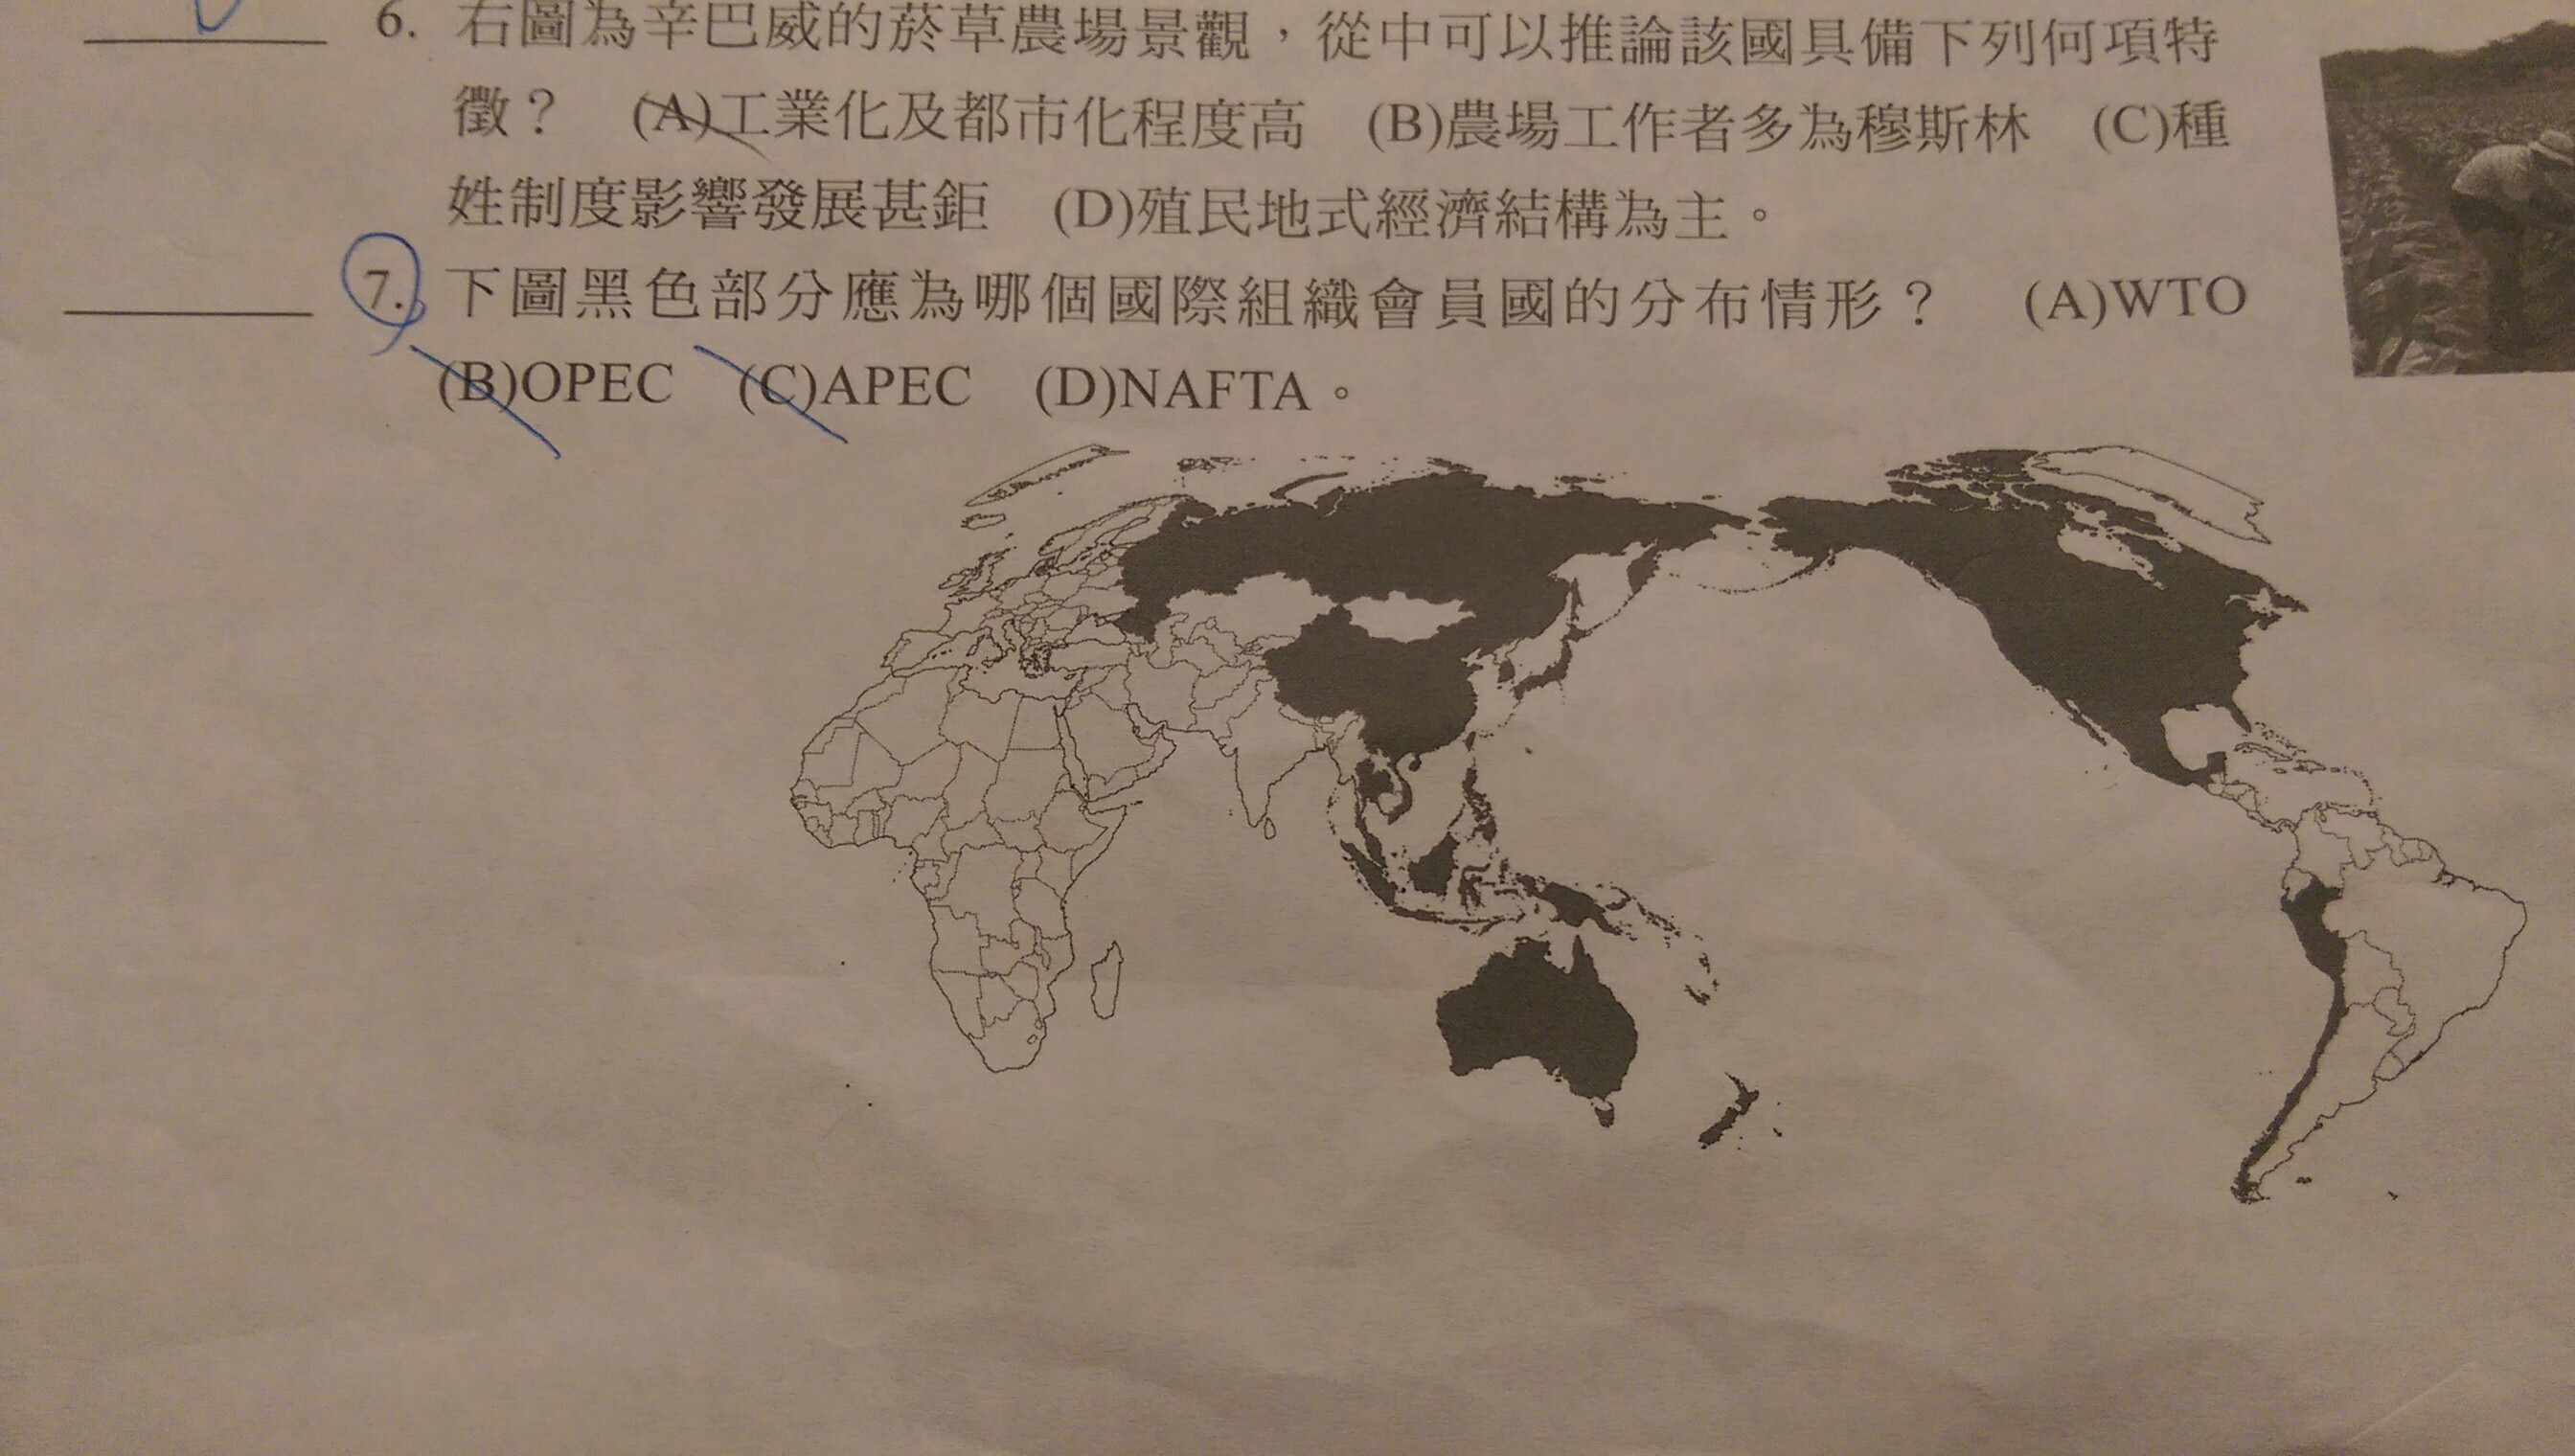 6. 右圖為辛巴威的菸草農場景觀，從中可以推論該國具備下列何項特
徵？ (A)工業化及都市化程度高 (B)農場工作者多為穆斯林 (C)種
姓制度影響發展甚鉅 (D)殖民地式經濟結構為主。
7. 下圖黑色部分應為哪個國際組織會員國的分布情形？ (A)WTO
(B)OPEC (C)APEC (D)NAFTA。